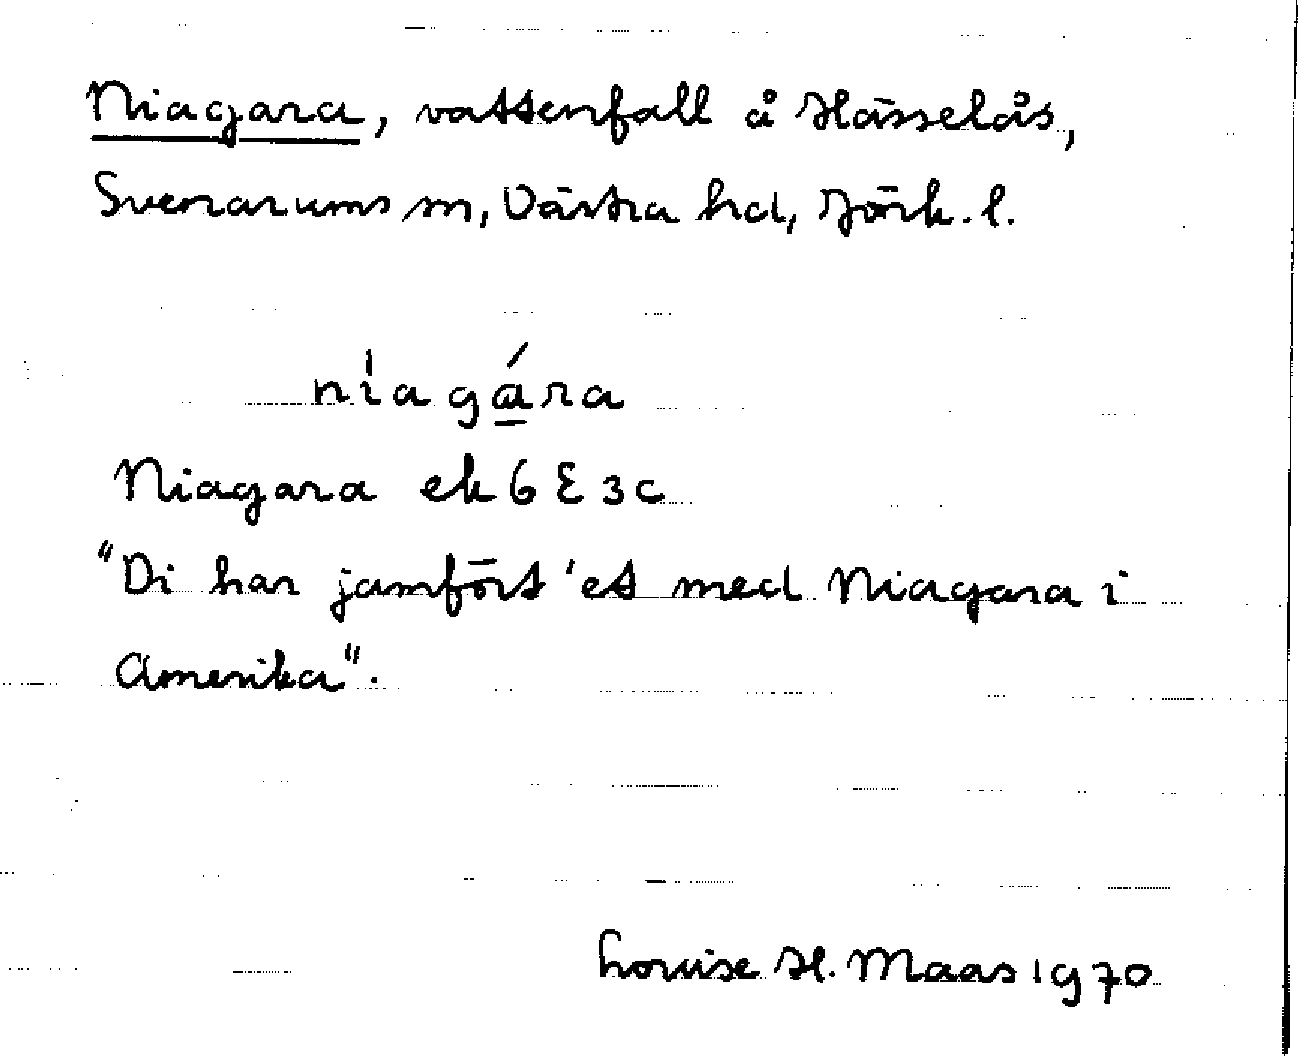 Niagara, vattenfall å Hässelås,
Svenarums sn, Västra hd, Jönk. l.
níagára
Niagara ek 6 E 3c
"Di har jamfört 'et med Niagara i
Amerika".
Louise H. Maas 1970